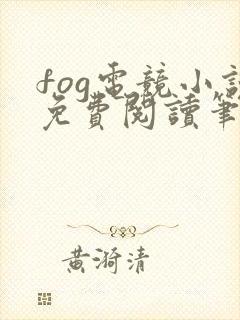 fog電競小說
免費閱讀筆
黃漪清